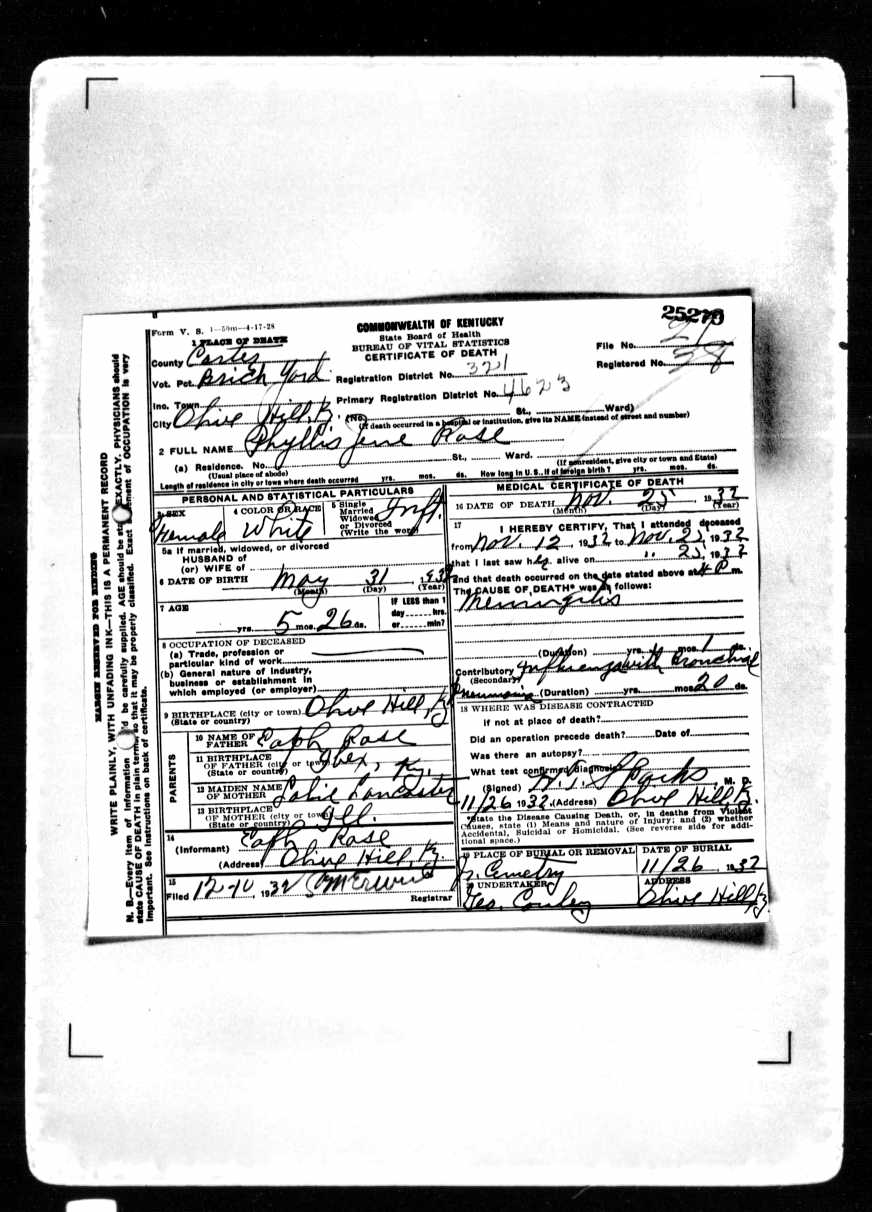 25273
Form V. S. 1-50m-4-17-28
COMMONWEALTH OF KENTUCKY
State Board of Health
BUREAU OF VITAL STATISTICS
CERTIFICATE OF DEATH
File No. 21
Registered No. 38
1 PLACE OF DEATH
County Carter
Vot. Pct. Brick Yard
Registration District No. 321
Inc. Town
Primary Registration District No. 4623
City Olive Hill, Ky. (No. St., Ward)
(If death occurred in a hospital or institution, give its NAME instead of street and number)
2 FULL NAME Phyllis Jene Rose
(a) Residence. No. St., Ward.
(Usual place of abode) (If nonresident, give city or town and State)
Length of residence in city or town where death occurred yrs. mos. ds. How long in U. S., if of foreign birth? yrs. mos. ds.
PERSONAL AND STATISTICAL PARTICULARS
3 SEX Female
4 COLOR OR RACE White
5 Single Married Widowed or Divorced (Write the word) Inft.
5a If married, widowed, or divorced
HUSBAND of
(or) WIFE of
6 DATE OF BIRTH May 31, 1932
(Month) (Day) (Year)
7 AGE yrs. 5 mos. 26 ds.
IF LESS than 1 day hrs. or min?
8 OCCUPATION OF DECEASED
(a) Trade, profession or particular kind of work
(b) General nature of industry, business or establishment in which employed (or employer)
9 BIRTHPLACE (city or town) Olive Hill, Ky
(State or country)
PARENTS
10 NAME OF FATHER Eaph Rose
11 BIRTHPLACE OF FATHER (city or town) Ibex, Ky.
(State or country)
12 MAIDEN NAME OF MOTHER Lancaster
13 BIRTHPLACE OF MOTHER (city or town) Ill.
(State or country)
14
(Informant) Eaph Rose
(Address) Olive Hill, Ky.
15
Filed 12-10, 1932
Registrar
MEDICAL CERTIFICATE OF DEATH
16 DATE OF DEATH Nov. 25 1932
(Month) (Day) (Year)
17 I HEREBY CERTIFY, That I attended deceased
from Nov. 12, 1932 to Nov. 25, 1932
that I last saw her alive on " 25, 1932
and that death occurred on the date stated above at 4 P m.
The CAUSE OF DEATH* was as follows:
Meningitis
(Duration) yrs. mos. 1 ds.
Contributory Influenza with Bronchial
(Secondary)
Pneumonia (Duration) yrs. mos. 20 ds.
18 WHERE WAS DISEASE CONTRACTED
if not at place of death?
Did an operation precede death? Date of
Was there an autopsy?
What test confirmed diagnosis?
(Signed) Parks M. D.
11/26 1932. (Address) Olive Hill Ky.
*State the Disease Causing Death, or, in deaths from Violent
Causes, state (1) Means and nature of Injury; and (2) whether
Accidental, Suicidal or Homicidal. (See reverse side for addi-
tional space.)
19 PLACE OF BURIAL OR REMOVAL
Cemetry
DATE OF BURIAL
11/26, 1932
20 UNDERTAKER
Geo. Conley
ADDRESS
Olive Hill Ky.
MARGIN RESERVED FOR BINDING
WRITE PLAINLY, WITH UNFADING INK—THIS IS A PERMANENT RECORD
N. B.—Every item of information should be carefully supplied. AGE should be stated EXACTLY. PHYSICIANS should
state CAUSE OF DEATH in plain terms, so that it may be properly classified. Exact statement of OCCUPATION is very
important. See instructions on back of certificate.